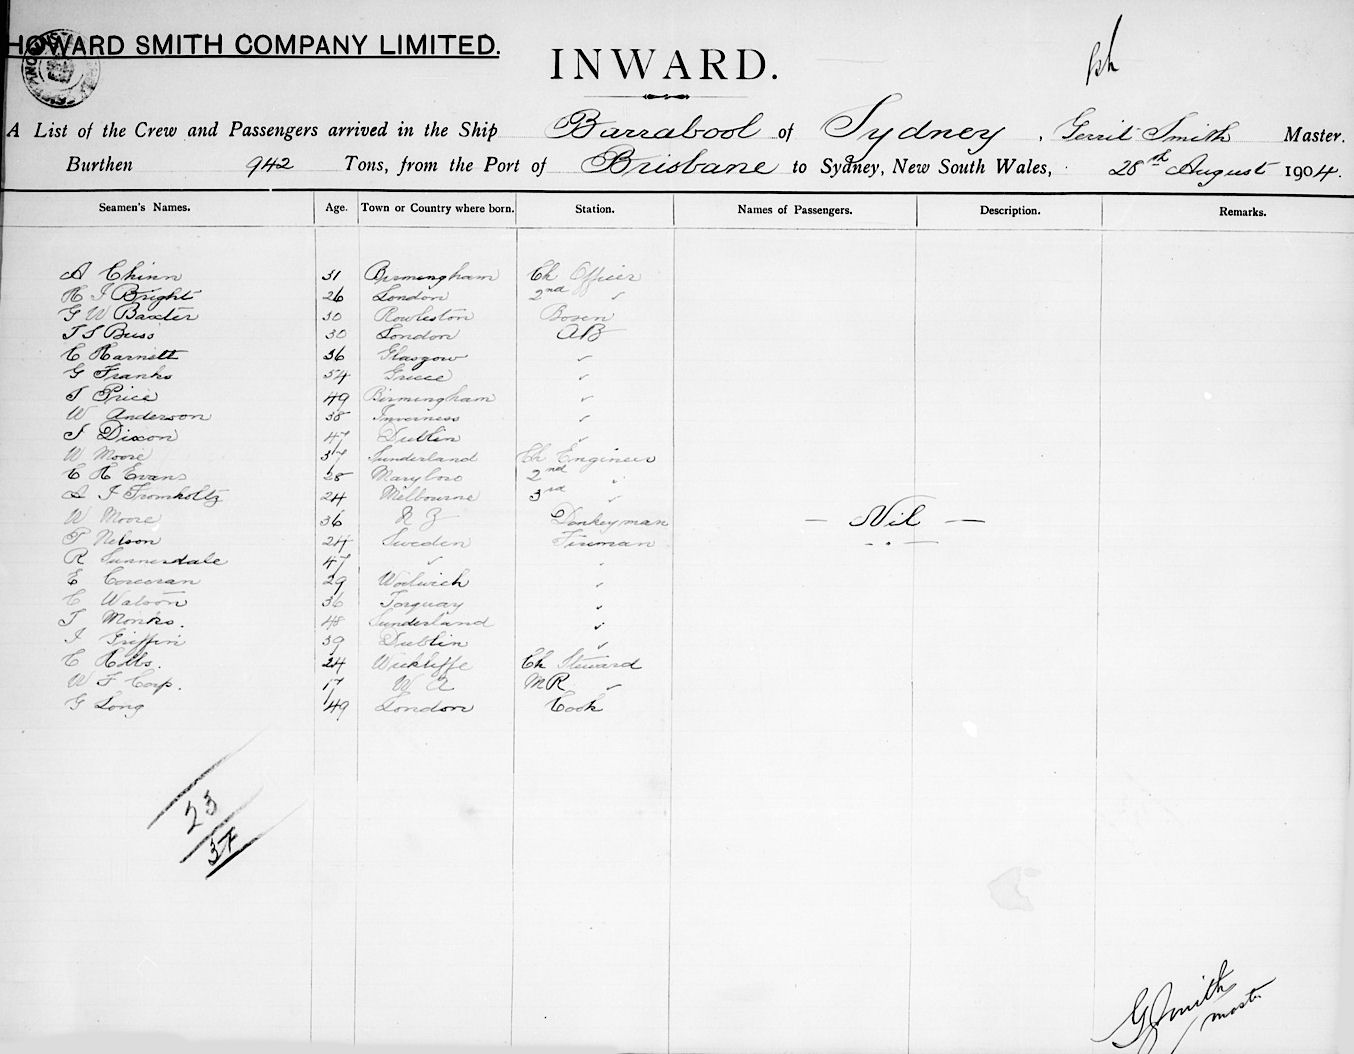 HOWARD SMITH COMPANY LIMITED.
INWARD.
A List of the Crew and Passengers arrived in the Ship Barrabool of Sydney, Gerrit Smith Master.
Burthen 942 Tons, from the Port of Brisbane to Sydney, New South Wales, 28th August 1904.
Seamen's Names. Age. Town or Country where born. Station. Names of Passengers. Description. Remarks.
A Chinn 31 Birmingham Ch Officer
H J Bright 26 London 2nd "
G W Baxter 30 Rowleston Bosen
T S Buss 30 London AB
C Harnett 36 Glasgow "
G Franks 54 Greece "
J Price 49 Birmingham "
W Anderson 38 Inverness "
J Dixon 47 Dublin "
W Moore 37 Sunderland Ch Engineer
C H Evans 28 Maryboro 2nd "
A J Fromholtz 24 Melbourne 3rd "
W Moore 36 N Z Donkeyman
— Nil —
P Nelson 24 Sweden Fireman
R Sunnerdale 47 " "
E Corcoran 29 Woolwich "
C Watson 36 Torquay "
T Monks. 48 Sunderland "
J Griffin 39 Dublin "
C Hobbs. 24 Wickliffe Ch Steward
W F Corp. 17 W A MR "
G Long 49 London Cook
23
37
G Smith
master